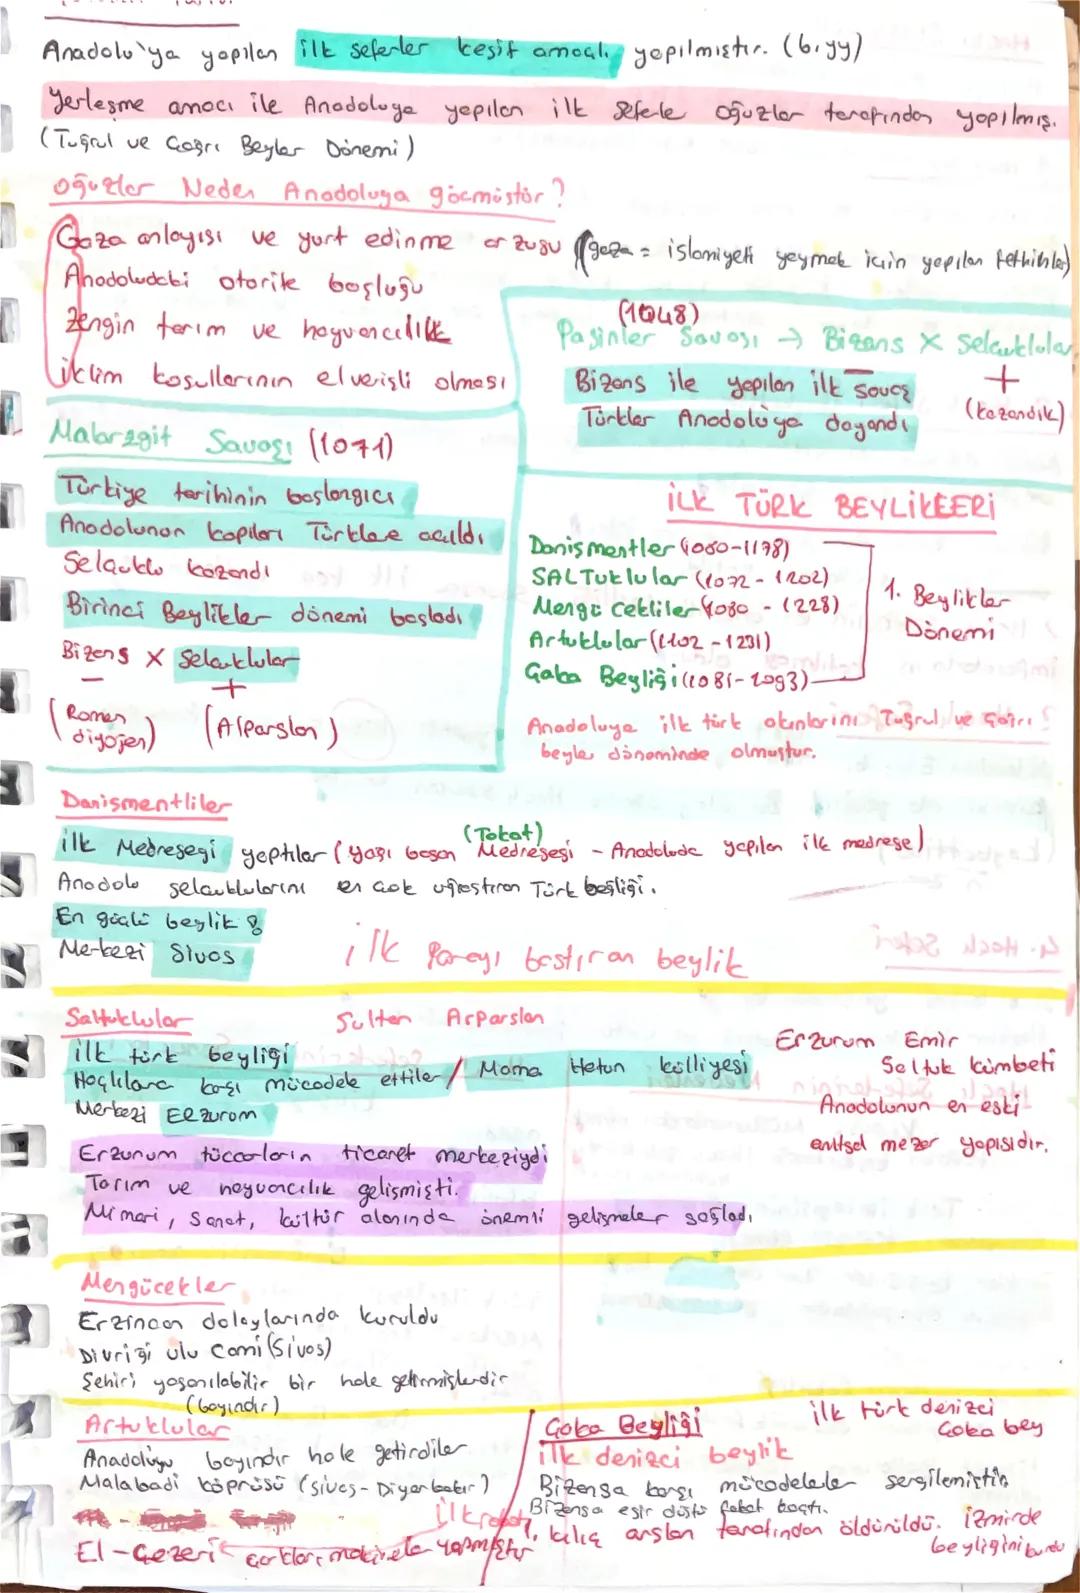 Anadolu'ya yapılan ilk seferler keşif amaçlı yapılmıştır. (6.yy)
Yerleşme amacı ile Anadoluya yapılan ilk sefele oğuzlar tarafından yapılmış.
(Tuğrul ve Çağrı Beyler Dönemi)
Oğuzlar Neden Anadoluya göçmüştür?
Gaza anlayışı ve yurt edinme arzusu (gaza = islamiyeti yaymak için yapılan fetihler)
Anadoludaki otorite boşluğu
Zengin tarım ve hayvancılık
iklim koşullarının elverişli olması
(1048)
Pasinler Savaşı → Bizans X Selçuklular
+
Bizans ile yapılan ilk savaş
(kazandık)
Türkler Anadoluya dayandı
Malazgit Savaşı (1071)
Türkiye tarihinin başlangıcı
Anadolunun kapıları Türklere açıldı
Selçuklu kazandı
Birinci Beylikler dönemi başladı
Bizans X Selçuklular
- +
(Romen diyojen) (Alparslan)
İLK TÜRK BEYLİKLERİ
Danişmentler (1080-1178)
SALTuklular (1072 - 1202)
Mengücekliler (1080 - 1228)
Artuklular (1102 - 1231)
Çaka Beyliği (1081-1093)
1. Beylikler Dönemi
Anadoluya ilk türk akınlarını Tuğrul ve Çağrı
beyler döneminde olmuştur.
Danişmentliler
(Tokat)
ilk Medreseyi yaptılar (yağı basan Medresesi - Anadoluda yapılan ilk medrese)
Anadolu selçuklularını en çok uğraştıran Türk beyliği.
En güçlü beylik
Merkezi Sivas
ilk Parayı bastıran beylik
Saltuklular Sultan Arparslan
ilk türk beyliği
Haçlılara karşı mücadele ettiler / Mama Hatun külliyesi
Merkezi Erzurum
Erzurum Emir
Saltuk kümbeti
Anadolunun en eski
anıtsal mezar yapısıdır.
Erzurum tüccarların ticaret merkeziydi
Tarım ve hayvancılık gelişmişti.
Mimari, Sanat, kültür alanında önemli gelişmeler sağladı
Mengücekler
Erzincan dolaylarında kuruldu
Divriği ulu Cami (Sivas)
Şehiri yaşanılabilir bir hale getirmişlerdir
(bayındır)
Artuklular
Anadoluyu bayındır hale getirdiler
Malabadi köprüsü (Sivas-Diyarbakır)
El-Cezeri çarkları makinele yapmıştır
Çaka Beyliği
ilk türk denizci
Çaka bey
ilk denizci beylik
Bizansa karşı mücadeleler sergilemiştir
Bizansa esir düştü fakat kaçtı.
1. kılıç arslan tarafından öldürüldü. izmirde
beyliğini kurdu